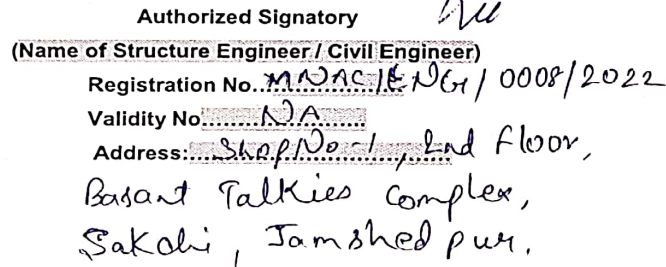 Authorized Signatory
(Name of Structure Engineer / Civil Engineer)
Registration No..MNAC/ENG/0008/2022
Validity No.......NA............
Address:....Shop No-1, 2nd Floor,
Basant Talkies Complex,
Sakchi, Jamshedpur.